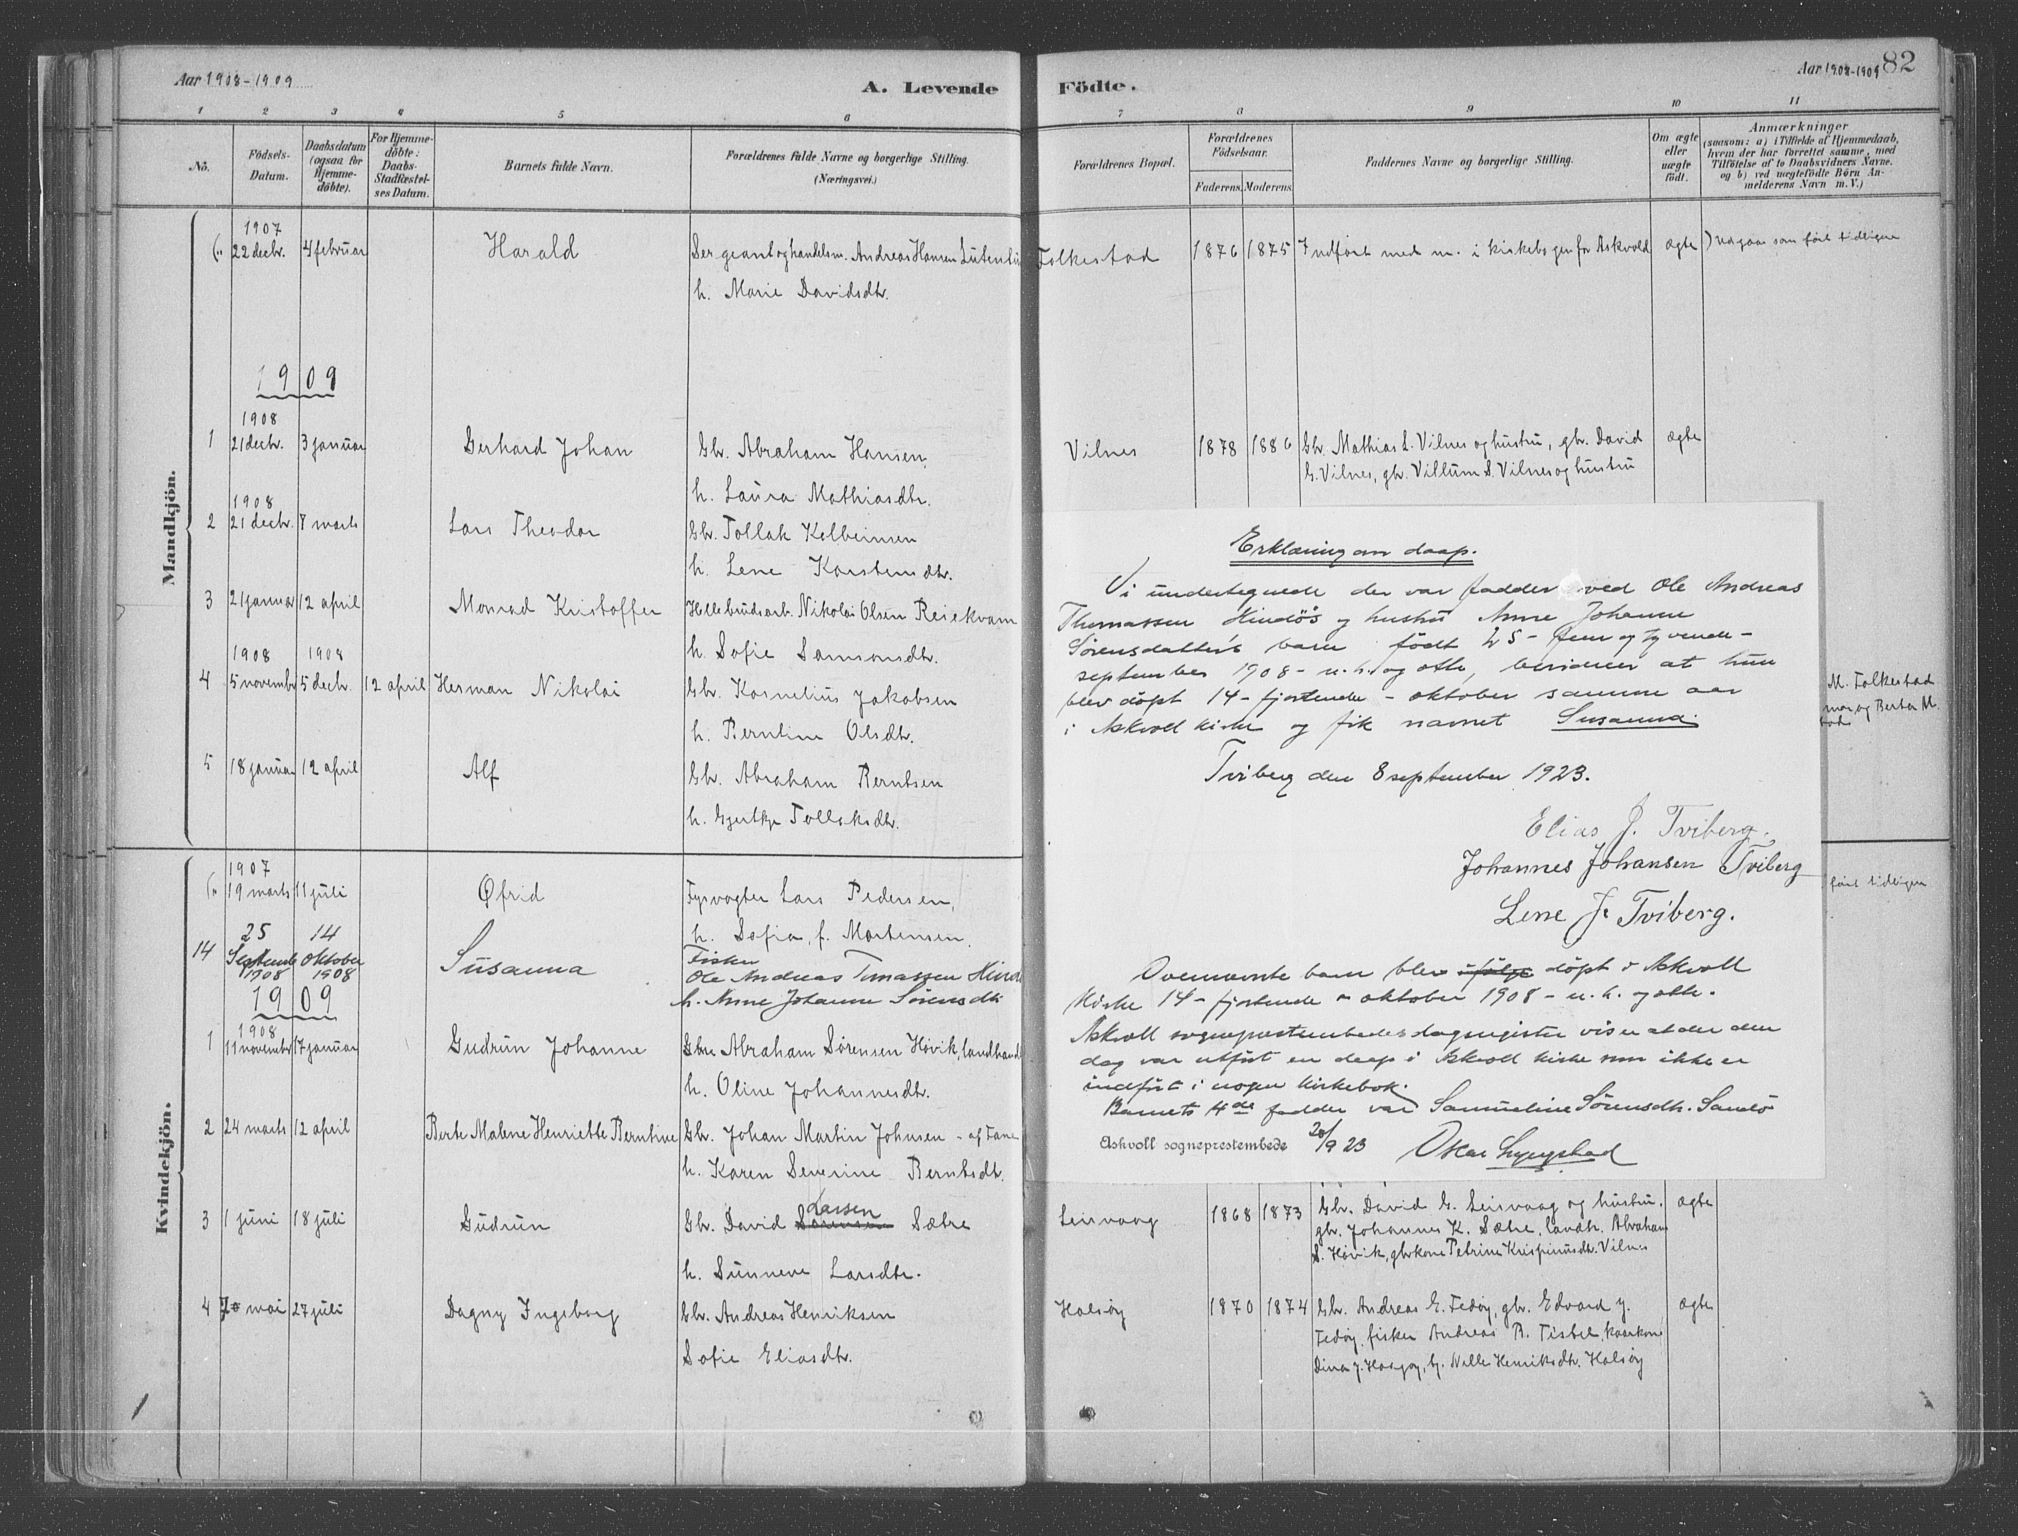 Aar 1908-1909
A. Levende
Födte.
Aar 1908-1909 82
1 2 3 4 5 6 7 8 9 10 11
No.
Födsels-
Datum.
Daabsdatum
(ogsaa for
Hjemme-
döbte).
For Hjemme-
döbte:
Daabs-
Stadfæstel-
ses Datum.
Barnets fulde Navn.
Forældrenes fulde Navne og borgerlige Stilling.
(Næringsvei.)
Forældrenes Bopæl.
Forældrenes
Födselsaar.
Faderens. Moderens.
Faddernes Navne og borgerlige Stilling.
Om ægte
eller
uægte
födt.
Anmærkninger
(saasom: a) i Tilfælde af Hjemmedaab,
hvem der har forrettet samme, med
Tilföielse af to Daabsvidners Navne.
og b) ved uægtefödte Börn An-
melderens Navn m. V.)
Mandkjön.
1907
22 decbr. 4 februar Harald Sergeant og handelsm. Andreas Hansen
h. Marie Davidsdtr.
Folkestad 1876 1875 Indført med nr. i kirkebogen for Askvold ægte ført tidligere
1909
1908
1 21 decbr. 3 januar Gerhard Johan Gbr. Abraham Hansen,
h. Laura Mathiasdtr.
Vilnes 1878 1886 Gbr. Mathias L. Vilnes og hustru, gbr. David
G. Vilnes, gbr. Villum S. Vilnes og hustru
ægte
1908
2 21 decbr. 7 marts Lars Theodor Gbr. Tollak Kolbeinsen
h. Lene Karstensdtr.
3 21 januar 12 april Monrad Kristoffer Nikolai Olsen
h. Sofie Samsonsdtr.
1908 1908
4 5 november 5 decbr. 12 april Herman Nikolai Gbr. Kornelius Jakobsen
h. Berntine Olsdtr.
M. Folkestad
og Berta M.
5 18 januar 12 april Alf Gbr. Abraham Berntsen
h. Gjertke Tollaksdtr.
Kvindekjön.
1907
19 marts 11 juli Øfrid Fyrvogter Lars Pedersen,
h. Sofia, f. Mortensen.
ført tidligere
25 14
14 September oktober Susanna Fisker
1908 1908 Ole Andreas Tomassen
h. Anne Johanne Sørensdtr
1909
1908
1 11 november 17 januar Gudrun Johanne Gbr Abraham Sørensen Høvik, landhandl
h. Oline Johannesdtr.
2 24 marts 12 april Berte Malene Henriette Berntine Gbr. Johan Martin Johnsen
h. Karen Severine Berntsdtr.
3 1 juni 18 juli Gudrun Gbr. David Larsen Sætre
h. Sunneve Larsdtr.
Leirvaag 1868 1873 Gbr. David G. Leirvaag og hustru,
gbr. Johannes K. Sætre, landh. Abraham
S. Høvik, gbrkone Petrine Krispinusdtr. Vilnes
ægte
4 mai 27 juli Dagny Ingeborg Gbr. Andreas Henriksen
Sofie Eliasdtr.
Halsøy 1870 1874 Gbr. Andreas E. Tedøy, gbr. Edvard J.
Tedøy, fisker Andreas B. Tistel, kaarkone
Dina J. Nille Henriksdtr. Halsøy
ægte
Erklæring om daap.
Vi undertegnede der var fadder ved Ole Andreas
Thomassen Hindøs og hustru Anne Johanne
Sørensdatters barn født 25 - fem og tyvende -
september 1908 - n.h. og otte, bevidner at hun
blev døpt 14 - fjortende - oktober samme aar
i Askvoll kirke og fik navnet Susanna.
Tviberg den 8 september 1923.
Elias J. Tviberg.
Johannes Johansen Tviberg
Lene J. Tviberg.
Ovennævnte barn blev ifølge døpt i Askvoll
kirke 14 - fjortende - oktober 1908 - n.h. og otte.
Askvoll sogneprestembedes dagregister viser at der den
dag var utført en daap i Askvoll kirke som ikke er
indført i nogen kirkebok.
Barnets 4de fadder var Samueline Sørensdtr. Sandø
Askvoll sogneprestembede 20/9 23 Oskar